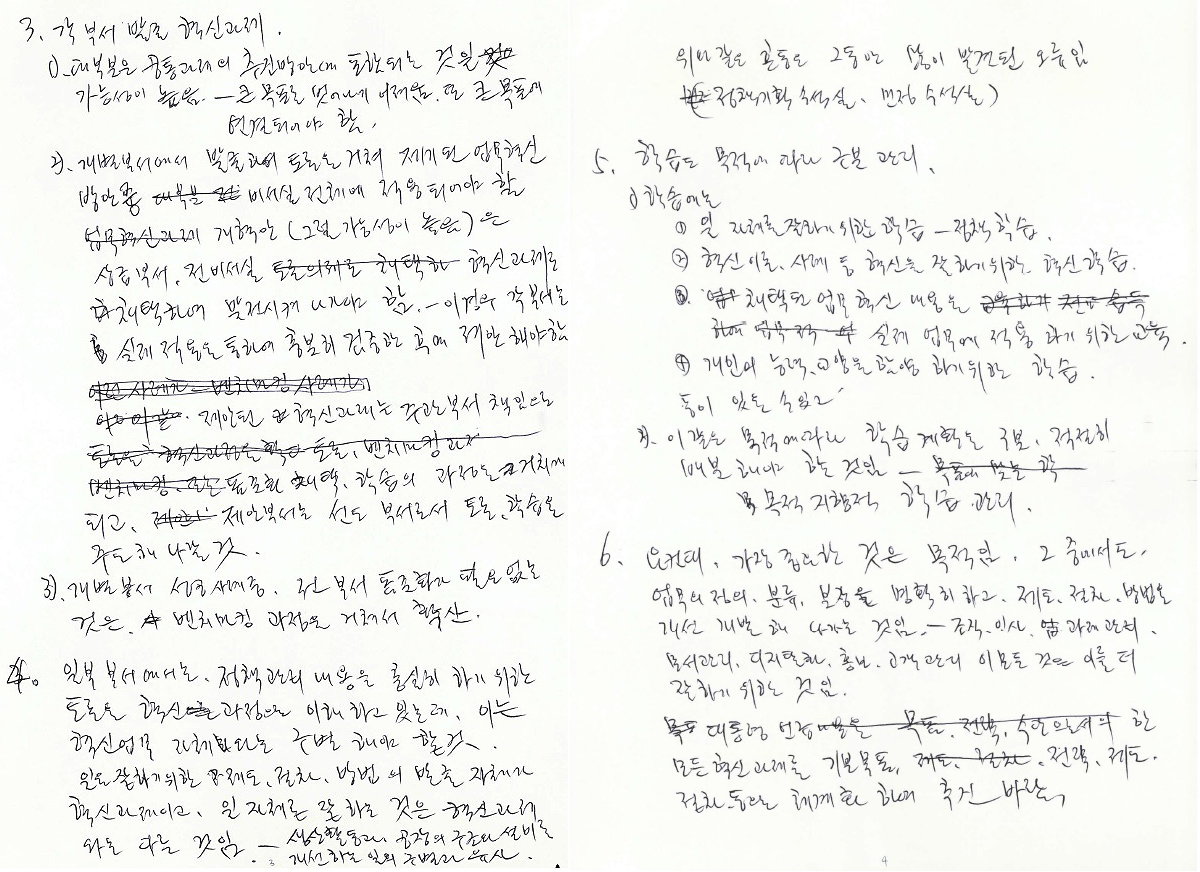 3. 각 부서 발굴 혁신과제.
1). 대부분은 공통과제의 추진방안에 포함되는 것일
가능성이 높음. — 큰 목표를 벗어나기 어려움. 또 큰 목표에
연결되어야 함.
2). 개별부서에서 발굴하여 토론을 거쳐 제기된 업무혁신
방안 중 대부분 비서실 전체에 적용되어야 할
업무혁신과제 개혁안 (그럴 가능성이 높음) 은
상급부서, 전비서실 토론의제로 채택하 혁신과제로
채택하여 발전시켜 나가야 함. — 이경우 각 부서는
실제 적용을 통하여 충분히 검증한 후에 제안해야함
이런 사례가 — 벤치마킹 사례가
제안된 혁신과제는 주관부서 책임으로
토론을 토론, 벤치마킹 과
벤치마킹, 또는 표준화 채택, 학습의 과정을 거치게
되고, 제안 제안부서는 선도 부서로서 토론, 학습을
주도해 나갈 것.
3). 개별부서 성공사례중, 전 부서 표준화가 필요 없는
것은, 벤치마킹 과정을 거쳐서 확산.
4. 일부 부서에서는, 정책관리 내용을 충실히 하기 위한
토론을 혁신 과정으로 이해하고 있는데, 이는
혁신업무 자체와는 구별해야 할것.
일을 잘하기위한 제도, 절차, 방법의 발굴 자체가
혁신과제이고, 일 자체를 잘 하는 것은 혁신과제
와는 다른 것임. — 생산활동과, 공장의 구조와 설비를
개선하는 일의 구별과 유사.
3
위와 같은 혼동은 그동안 많이 발견된 오류임
(정책기획 수석실, 민정 수석실)
5. 학습도 목적에 따라 구분 관리.
1) 학습에는
① 일 자체를 잘하기 위한 학습 — 정책학습.
② 혁신이론, 사례 등 혁신을 잘 하기위하는 혁신학습.
③ 채택된 업무혁신 내용을 교육하기 전파 습득
하여 업무 적 실제 업무에 적용 하기 위한 교육.
④ 개인의 능력, 교양을 함양 하기위한 학습.
등이 있을 수 있고
2). 이같은 목적에따라 학습 계획을 구분, 적절히
배분해야 하는 것임 — 목표에 맞는 학
목적 지향적 학습 관리.
6. 요컨대, 가장 중요한 것은 목적임. 그 중에서도,
업무의 정의, 분류, 분장을 명확히 하고, 제도, 절차, 방법을
개선 개발해 나가는 것임. — 조직, 인사, 과제관리,
문서관리, 디지털화, 홍보, 고객관리 이 모든 것은 이를 더
잘하기 위하는 것임.
목표 대통령 목표, 전략, 수단으로서의 한
모든 혁신과제를 기본목표, 제도, 절차, 전략, 제도,
절차 등으로 체계화 하여 추진 바람.
4